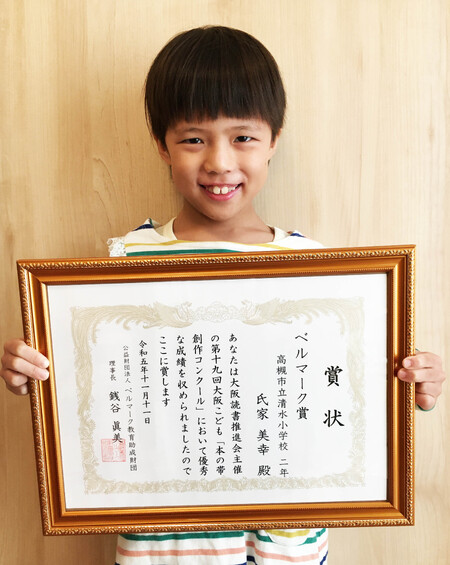 賞状
ベルマーク賞
高槻市立清水小学校 二年
氏家 美幸 殿
あなたは大阪読書推進会主催
の第十九回大阪こども「本の帯
創作コンクール」において優秀
な成績を収められましたので
ここに賞します
令和五年十一月十一日
公益財団法人 ベルマーク教育助成財団
理事長 銭谷 眞美